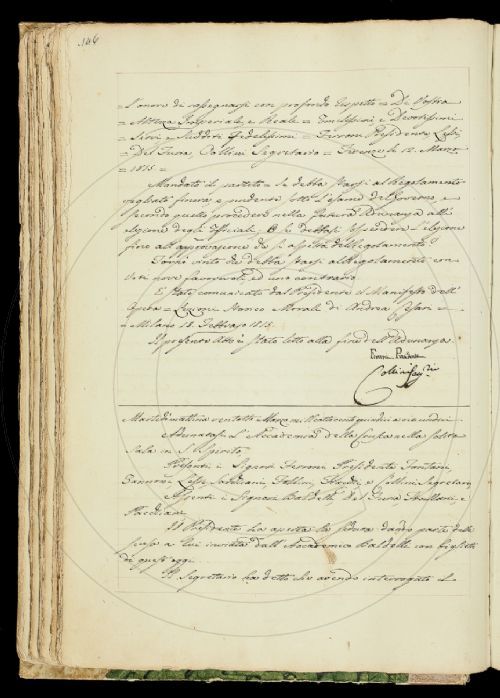 146
= L'onore di rassegnarsi con profondo Rispetto = Di Vostra
= Altezza Imperiale, e Reale = Umilissimi e Devotissimi
= Servi, e Sudditi Fedelissimi = Ferroni Presidente, Lessi,
= Del Furia, Collini Segretario = Firenze li 12. Marzo
= 1815 =
Mandato il partito = Se debba starsi al Regolamento
vegliato finora e
secondo quello procedere nella futura Adunanza all'
elezione degli Ufficiali; O se debbasi sospendere l'elezione
fino all'approvazione del Regolamento
vinto che debba starsi al Regolamento con
voti nove favorevoli, ed uno contrario.
È stato comunicato dal Presidente il Manifesto dell'
Opera = Lezioni Storico Morali di Andrea
= Milano 18. Febbraio 1815.
Il presente Atto è stato letto alla fine dell'Adunanza.
Ferroni Presidente
Collini Seg.rio
Martedì mattina ventotto Marzo mille ottocento quindici a ore undici.
Adunatasi l'Accademia della Crusca nella solita
Sala in S. Spirito
Presenti i Signori Ferroni Presidente, Fontani,
Sannoni, Lessi, e Collini Segretario,
Assenti i Signori Baldelli, Del Furia, e
Il Presidente ha aperta la seduta dando parte della
a lui inviata dall'Accademico Baldelli con biglietto
di quest'oggi.
Il Segretario ha detto che avendo interrogato il